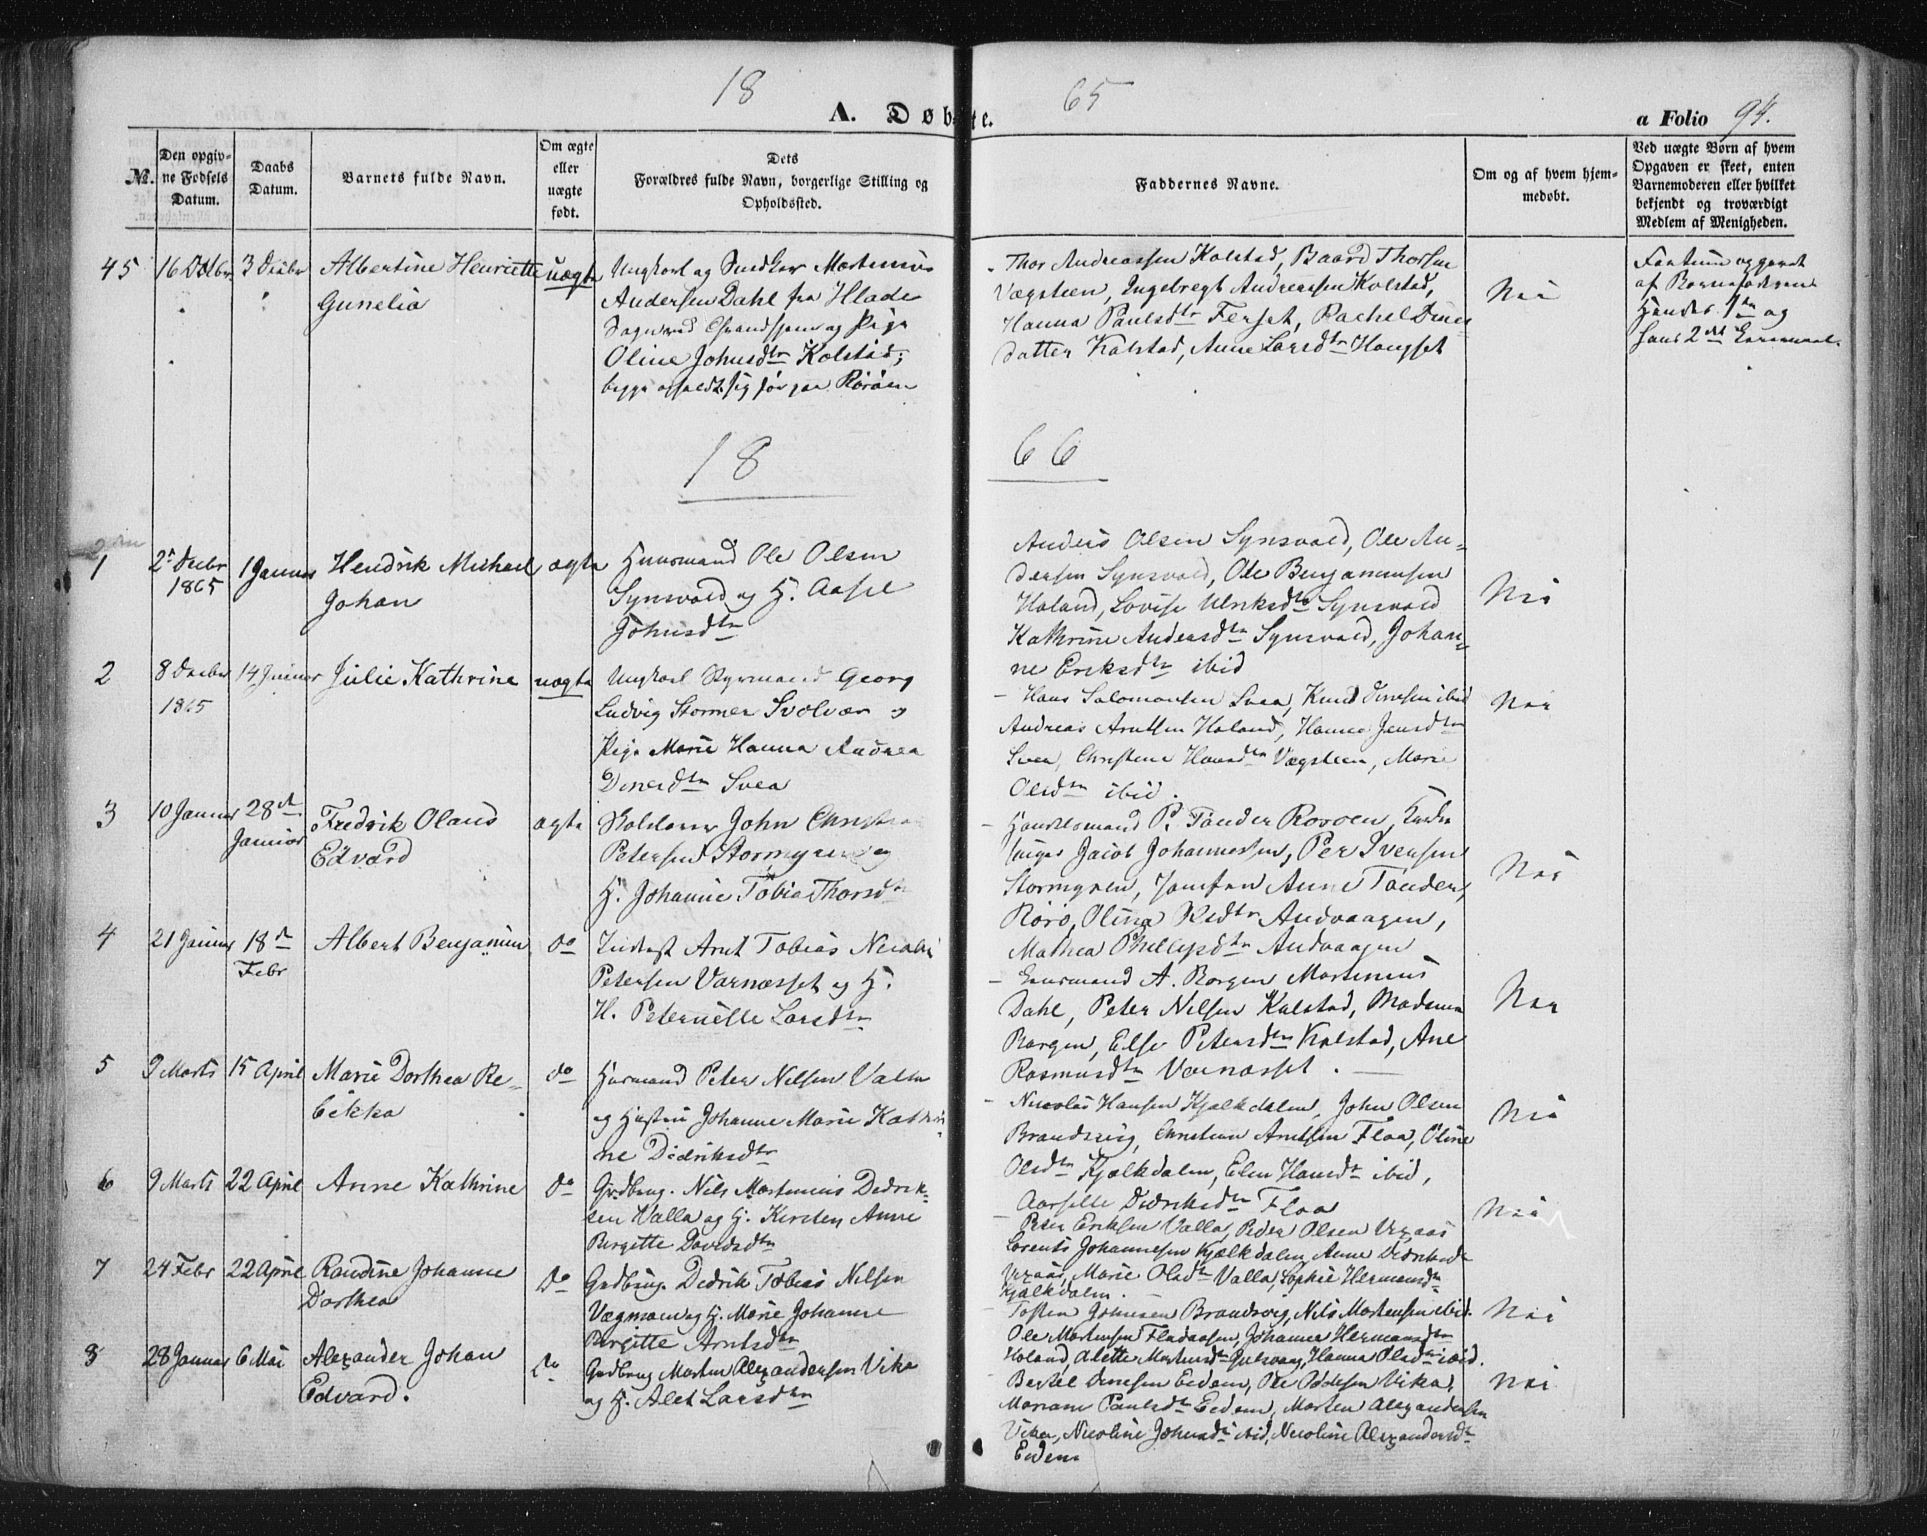 18 65
A. Døbte. a Folio 94.
№.
Den opgivne Fødsels Datum.
Daabs Datum.
Barnets fulde Navn.
Om ægte eller uægte født.
Dets
Forældres fulde Navn, borgerlige Stilling og
Opholdssted.
Faddernes Navne.
Om og af hvem hjemmedøbt.
Ved uægte Børn af hvem
Opgaven er skeet, enten
Barnemoderen eller hvilket
bekjendt og troværdigt
Medlem af Menigheden.
45 16 3 Decbr Albertine Henriette uægte Ungkarl og Martinus
Gunelia
Andersen Dahl fra Hlade
Sogn og Pige
Oline Johnsdtr Kolstad;
begge
Thor Andreassen Kolstad, Baard Thorsen
Vægsteen, Ingebregt Andreassen Kolstad,
Hanna Paulsdtr Ferset, Rachel Dines
datter Kolstad, Anne Larsdtr Hongset
Nei
af Barnefaderen
Hendes 1ste og
hans 2det
18 66
1 2n Decbr 1865 1 Januar Hendrik Michael
Johan
ægte
Huusmand Ole Olsen
Synsvold og H. Aasel
Johnsdtr
Anders Olsen Synsvold, Ole An-
dersen Synsvold, Ole Benjaminsen
Holand, Lovise Ulriksdtr Synsvold
Kathrine Andersdtr Synsvold, Johan-
ne Eriksdtr ibid
Nei
2 8 Decbr 1865 14 Januar Julie Kathrine uægte
Ungkarl Styrmand Georg
Ludvig Stormer Svolvær og
Pige Marie Hanna Andrea
Dinesdtr Svea
Hans Salomonsen Svea, Knud Dinesen ibid
Andreas Arntsen Holand, Hanna Jensdtr
Svea, Christine Hansdtr Vægsteen, Marie
Olsdtr ibid.
Nei
3 10 Januar 28de Januar
Fredrik Olaus
Edvard
ægte
Skolelærer John Christian
Petersen Stormyren og
H. Johanne Tobia Thorsdtr
Handelsmand P. Tønder Rorøen, Kirke
sanger Jacob Johannessen, Per Iversen
Stormyren, Jomfru Anne Tønder,
Rørø, Olina Andvaagen,
Mathea Phillipsdtr Andvaagen
Nei
4 21 Januar 18de Febr
Albert Benjamin
do
Inderst Arnt Tobias Nicolai
Petersen Varnæsset og H.
H. Peternille Larsdtr
A. Borgen Martinius
Dahl, Peter Nilsen Kolstad, Madame
Borgen, Else Petersdtr Kolstad, Ane
Rasmusdtr Varnæsset.
Nei
5 9 Marts 15 April Marie Dorthea Re-
bekka
do
Husmand Peter Nilsen Valla
og Hustru Johanne Marie Kathri-
ne Didriksdtr
Nicolai Hansen Kjælkdalen, John Olsen
Brandsvig, Christian Arntsen Floa, Oline
Olsdtr Kjælkdalen, Elen Hansdtr ibid,
Aarselle Didriksdtr Floa
Nei
6 9 Marts 22 April Anne Kathrine do
Grdbrug. Nils Martinius Dedrik-
sen Valla og H. Kirsten Anne
Birgitte Davidsdtr
Peter Eriksen Valla, Peder Olsen Uraas
Lorents Johannesen Kjælkdalen, Anne Didriksdtr
Uraas, Marie Olsdtr Valla, Sophie Hermansdtr
Kjælkdalen.
Nei
7 24 Febr 22 April Randine Johanne
Dorthea
Do
Grdbrug. Didrik Tobias Nilsen
Vægmoen og H. Marie Johanne
Birgitte Arntsdtr
Tosten Johnsen Brandsvig, Nils Mortensen ibid.
Ole Mortensen Flodaasen, Johanna Hermansdtr
Holand, Alette Mortensdtr Gulsvaag, Hanna Olsdtr ibid.
Nei
8 28 Januar 6 Mai Alexander Johan
Edvard.
Do
Grdbrug Morten Alexandersen Vika
og H. Alet Larsdtr
Bertel Dinesen Eidem, Ole Vika,
Mariane Paulsdtr Eidem, Morten Alexandersen
Vika, Nicoline Johnsdtr ibid, Nicoline Alexandersdtr
Eidem
Nei